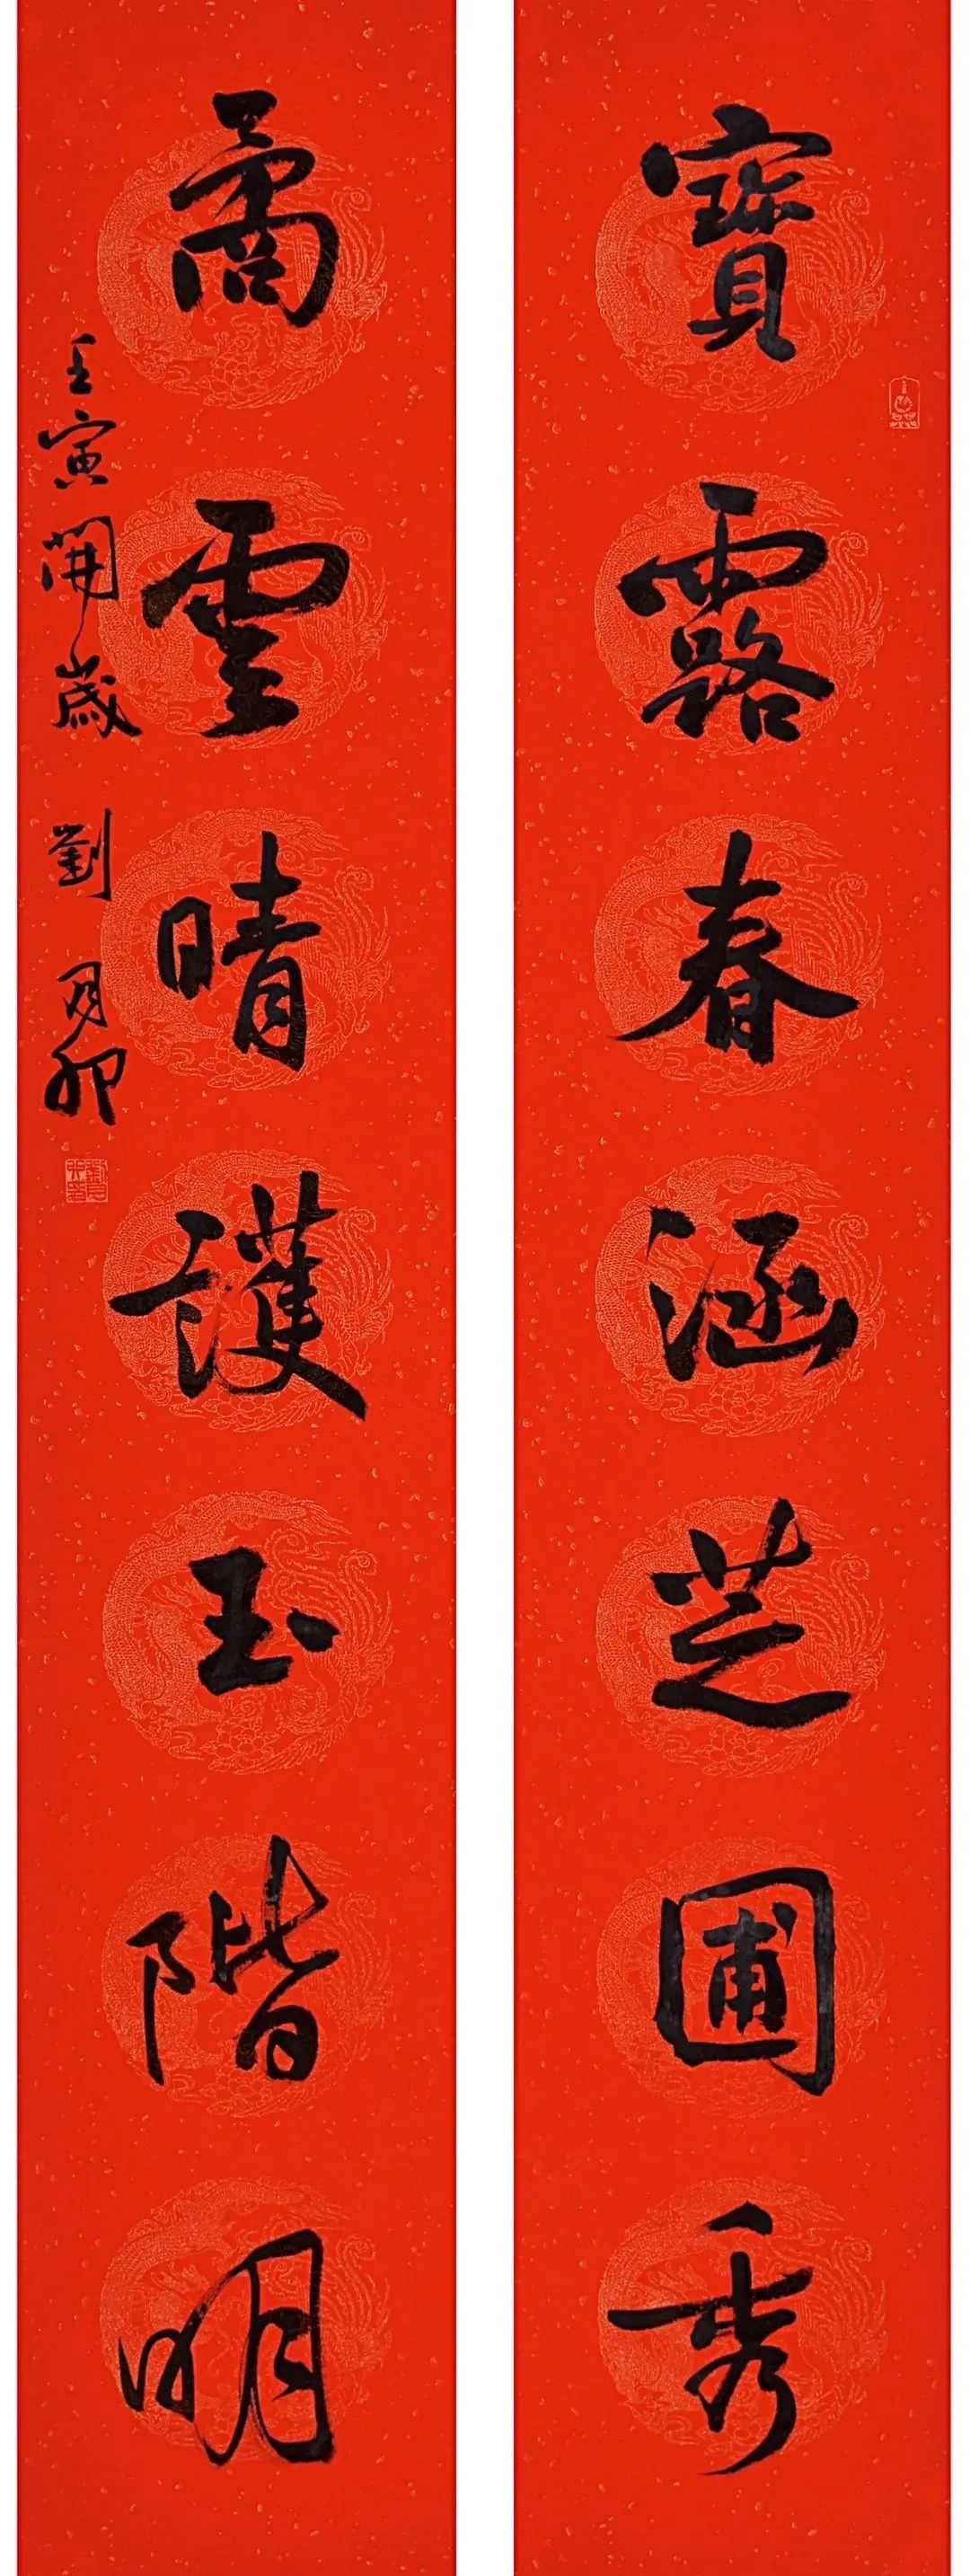 寶露春涵芝圃秀
矞雲晴護玉階明
壬寅開歲 劉月卯